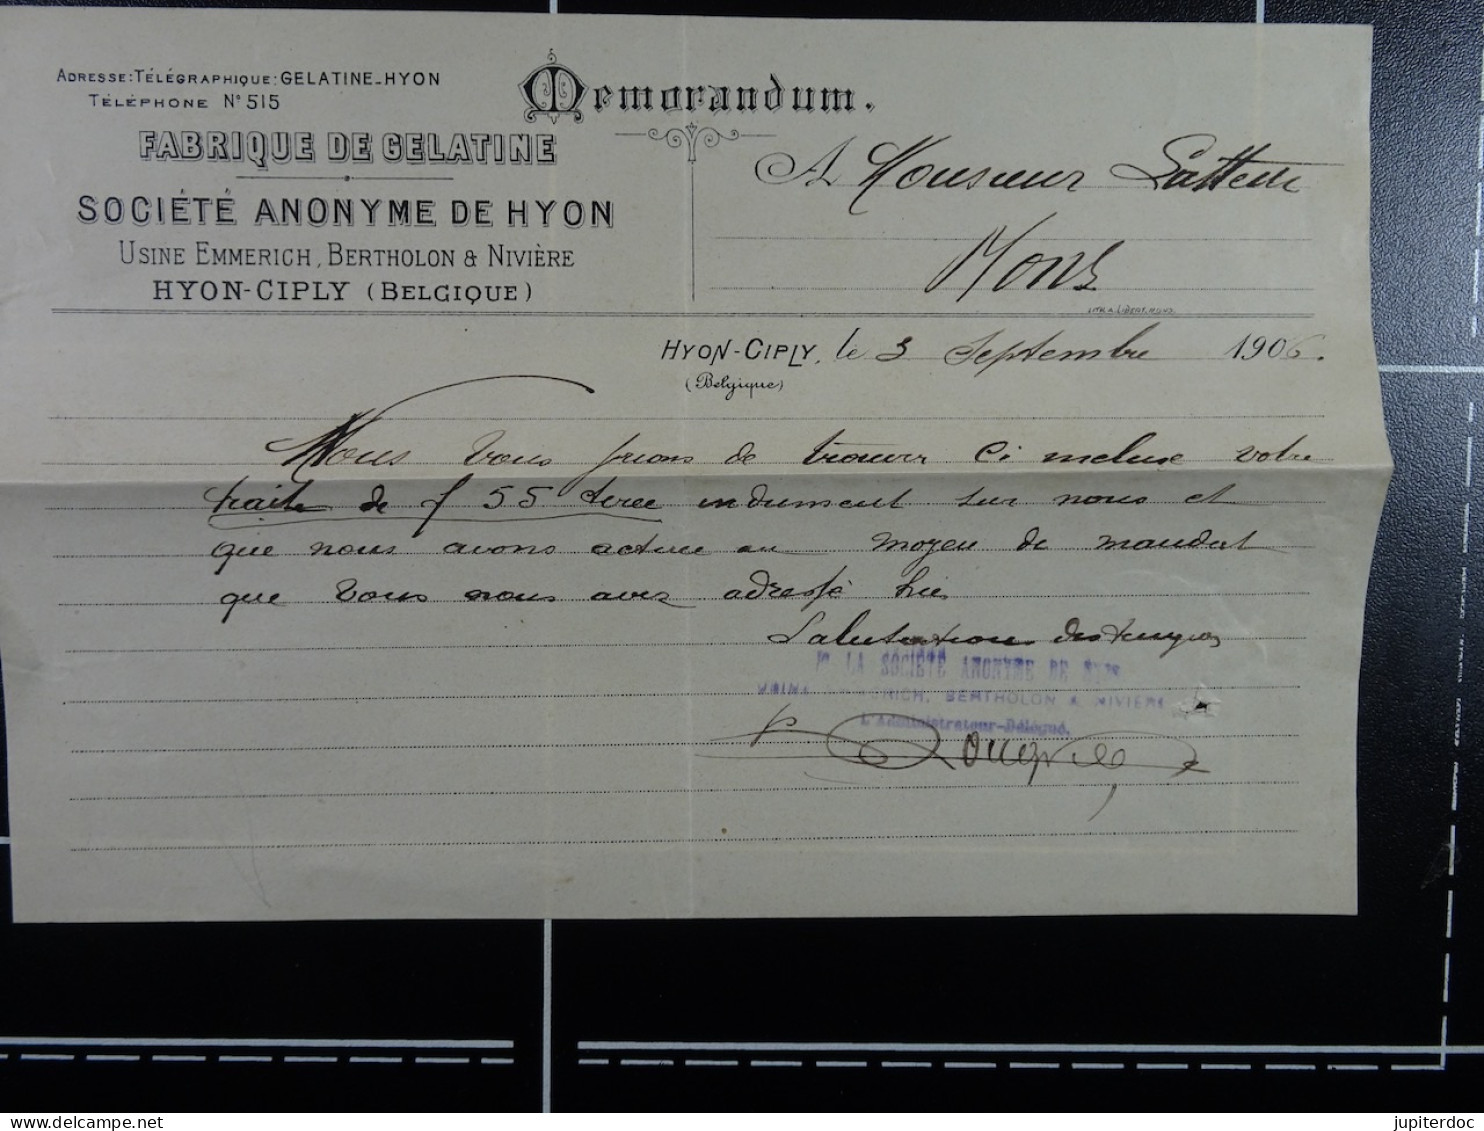 ADRESSE: TÉLÉGRAPHIQUE: GELATINE-HYON
TÉLÉPHONE N° 515
Memorandum.
FABRIQUE DE GELATINE
SOCIÉTÉ ANONYME DE HYON
USINE EMMERICH, BERTHOLON & NIVIÈRE
HYON-CIPLY (BELGIQUE)
A Monsieur
Mons
LITH. A. LIBERT, MONS.
HYON-CIPLY, le 3 Septembre 1906.
(Belgique)
Nous vous prions de trouver ci incluse votre
traite de f 55 tirée indument sur nous et
que nous avons au moyen de mandat
que vous nous avez adressé hier
Salutations
Pr LA SOCIÉTÉ ANONYME DE HYON
USINE EMMERICH, BERTHOLON & NIVIÈRE
L'Administrateur-Délégué,
jupiterdoc